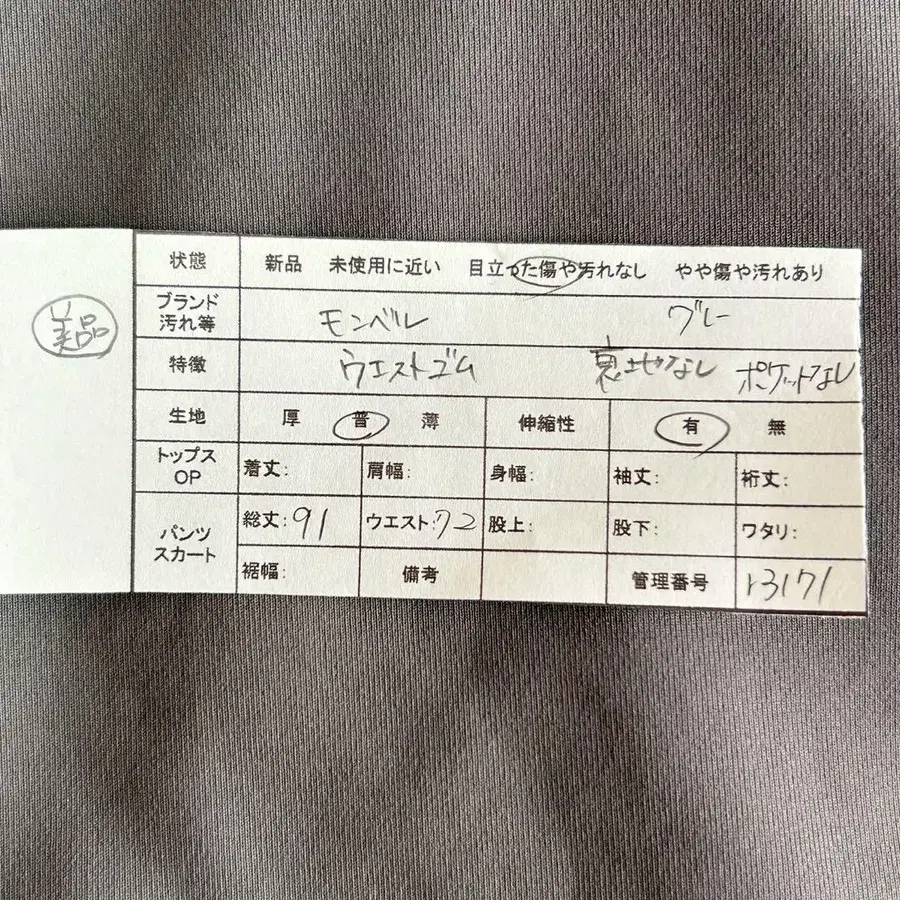 美品
状態 新品 未使用に近い 目立った傷や汚れなし やや傷や汚れあり
ブランド
汚れ等 モンベル グレー
特徴 ウエストゴム 裏地なし ポケットなし
生地 厚 普 薄 伸縮性 有 無
トップス
OP 着丈: 肩幅: 身幅: 袖丈: 裄丈:
パンツ
スカート 総丈:91 ウエスト:72 股上: 股下: ワタリ:
裾幅: 備考 管理番号 r3171